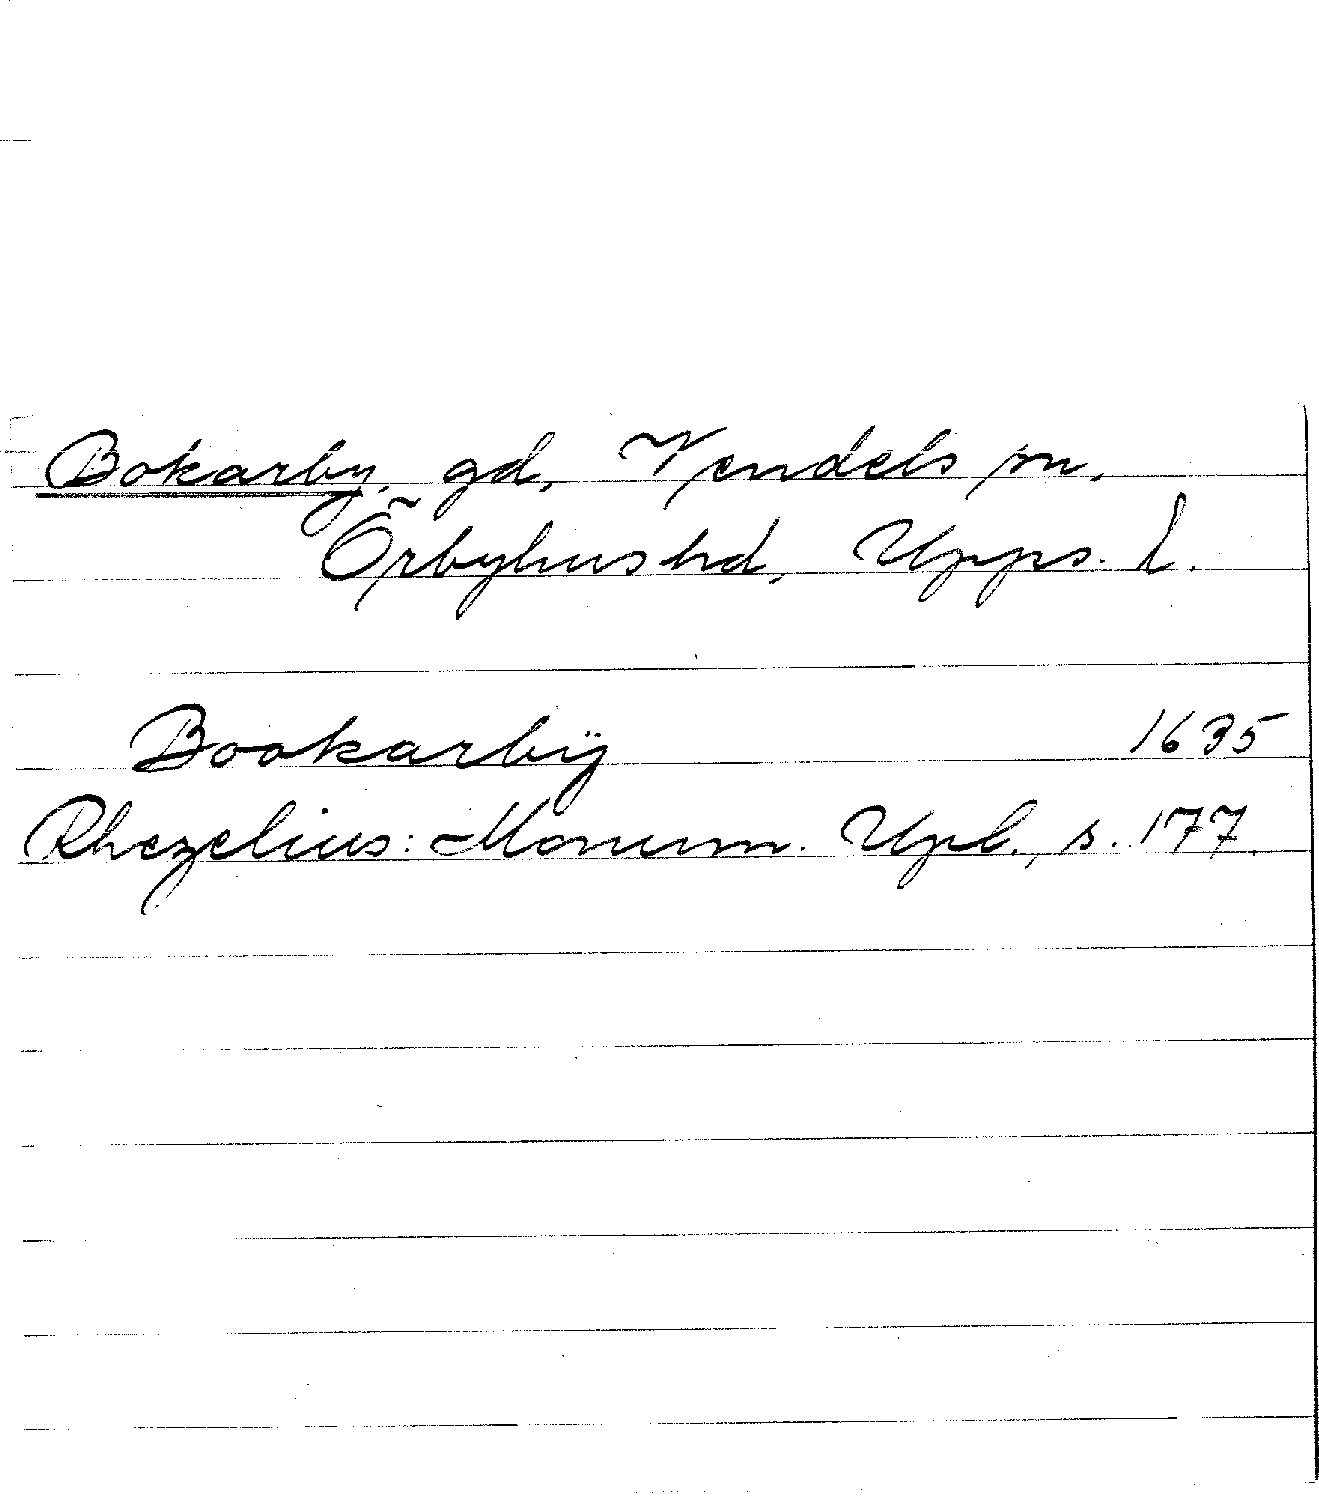 Bokarby, gd, Vendels sn,
Örbyhus hd, Upps. l.
Bookarbÿ 1635
Rhezelius: Monum. Upl., s. 177.